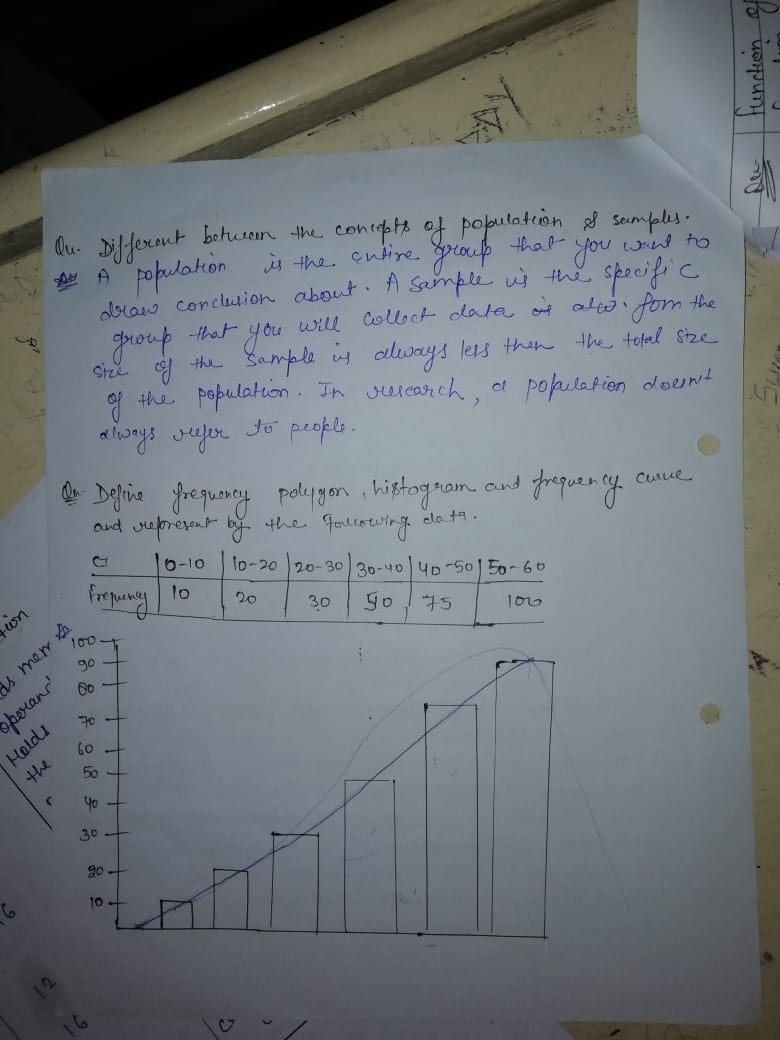 Qu. Different between the concepts of population & samples.
Ans A population is the entire group that you want to
draw conclusion about. A sample is the specific
group that you will collect data is also. fom the
size of the sample is always less then the total size
of the population. In research, a population doesn't
always refer to people.
Qu. Define frequency polygon, histogram and frequency curve
and represent by the following data.
CI 0-10 10-20 20-30 30-40 40-50 50-60
Frequency 10 20 30 50 75 100
100
90
80
70
60
50
40
30
20
10
function of
tion
ds mem
operand
Holds
the
16
12
16